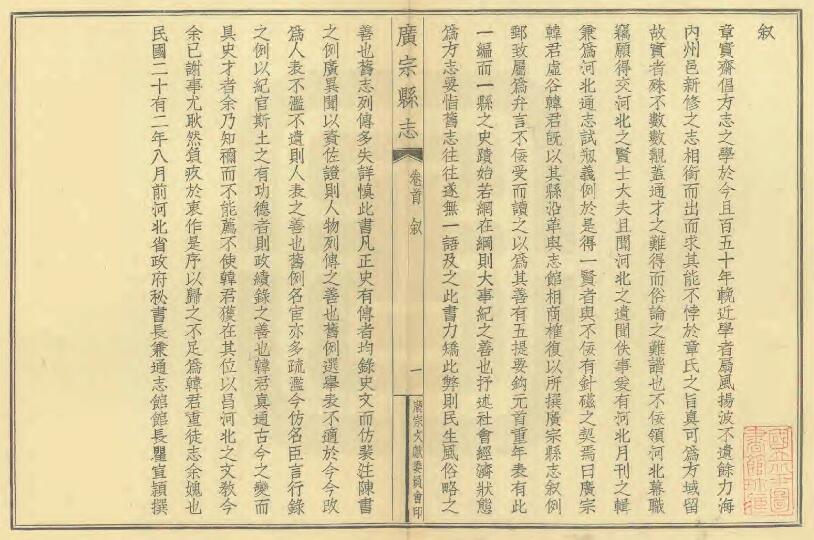 叙
章實齋倡方志之學於今且百五十年輓近學者扇風揚波不遺餘力海
內州邑新修之志相銜而出而求其能不悖於章氏之旨真可為方域留
故實者殊不數數覯蓋通才之難得而俗論之難諧也不佞領河北幕職
竊願得交河北之賢士大夫且聞河北之遺聞佚事爰有河北月刊之輯
兼為河北通志試刱義例於是得一賢者與不佞有針磁之契焉曰廣宗
韓君虛谷韓君既以其縣沿革與志館相商榷復以所撰廣宗縣志叙例
郵致屬為弁言不佞受而讀之以為其善有五提要鈎元首重年表有此
一編而一縣之史蹟始若網在綱則大事紀之善也抒述社會經濟狀態
為方志要恉舊志往往遂無一語及之此書力矯此弊則民生風俗略之
廣宗縣志
卷首 叙
一
廣宗文獻委員會印
善也舊志列傳多失詳慎此書凡正史有傳者均錄史文而仿裴注陳書
之例廣異聞以資佐證則人物列傳之善也舊例選舉表不適於今今改
為人表不濫不遺則人表之善也舊例名宦亦多疏濫今仿名臣言行錄
之例以紀官斯土之有功德者則政績錄之善也韓君真通古今之變而
具史才者余乃知禰而不能薦不使韓君獲在其位以昌河北之文教今
余已謝事尤耿然負疚於衷作是序以歸之不足為韓君重徒志余媿也
民國二十有二年八月前河北省政府秘書長兼通志館館長瞿宣穎撰